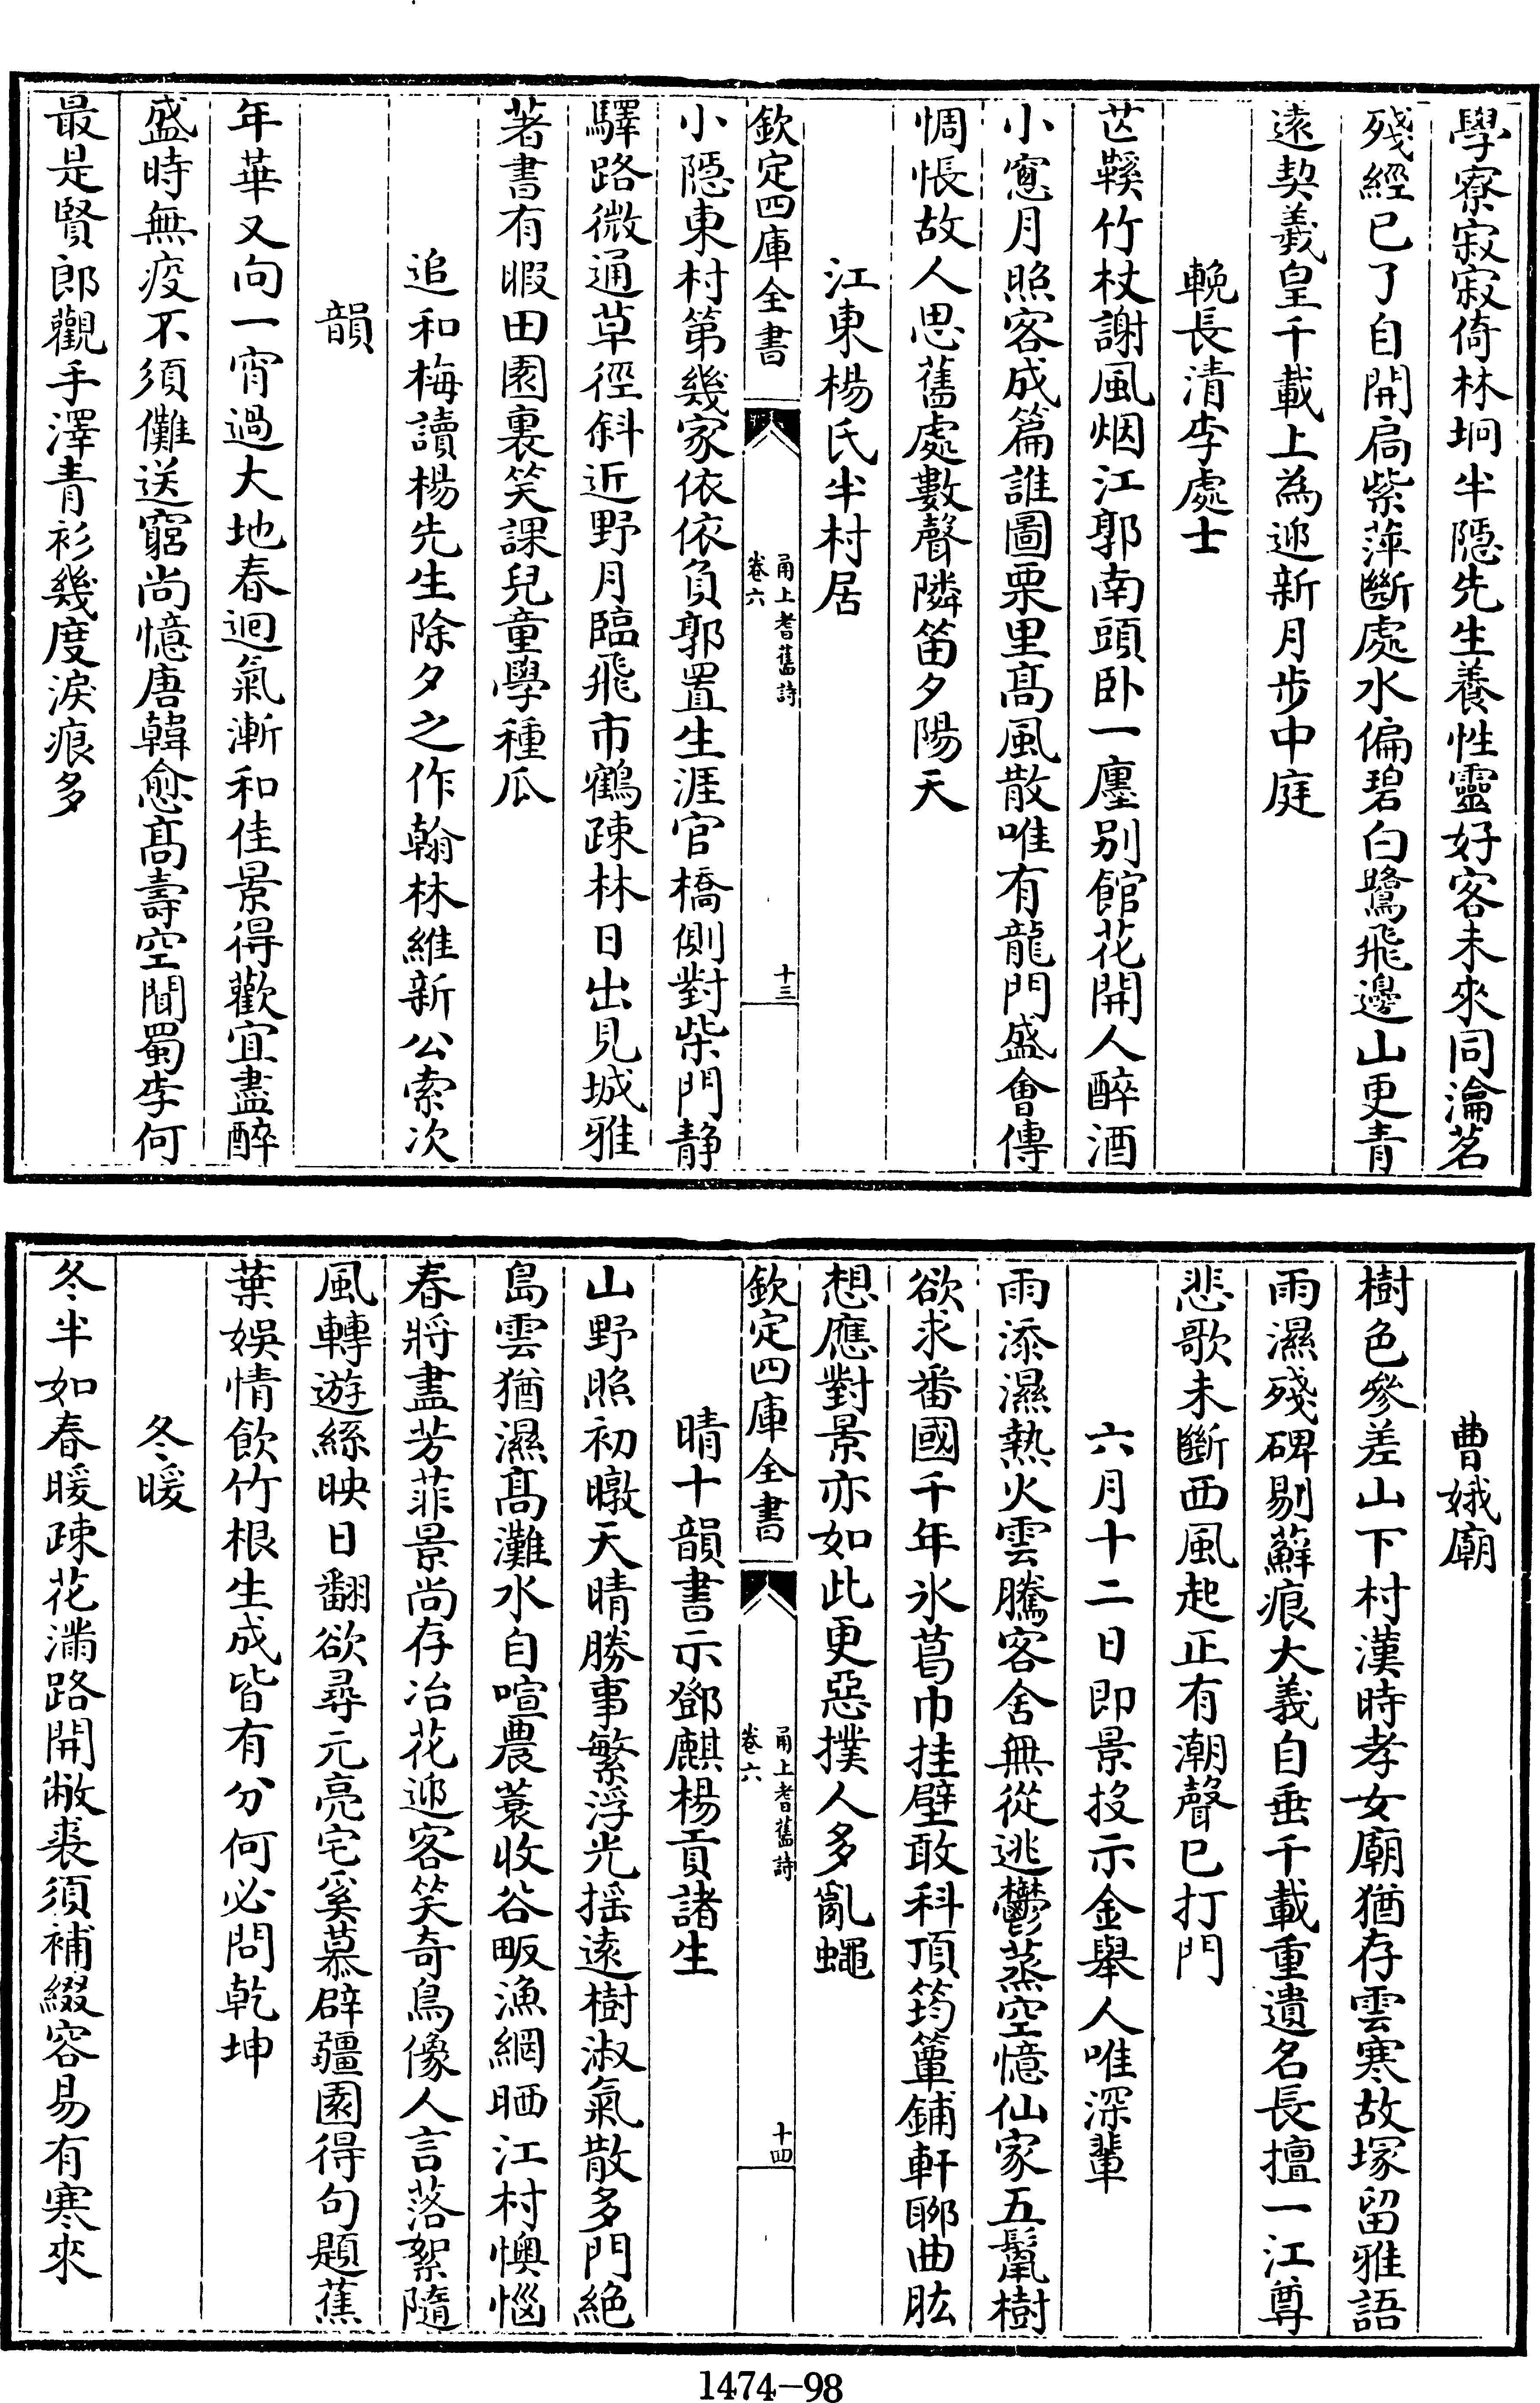 學寮寂寂倚林坰半隱先生養性靈好客未來同瀹茗
殘經已了自開扃紫萍斷處水偏碧白鷺飛邊山更青
遠契羲皇千載上為迎新月步中庭
輓長清李處士
芒鞵竹杖謝風烟江郭南頭卧一廛别館花開人醉酒
小窻月照客成篇誰圖栗里髙風散唯有龍門盛會傳
惆悵故人思舊處數聲隣笛夕陽天
江東楊氏半村居
欽定四庫全書
甬上耆舊詩
卷六
十三
小隱東村第幾家依依負郭置生涯官橋側對柴門静
驛路微通草徑斜近野月臨飛市鶴疎林日出見城雅
著書有暇田園裏笑課兒童學種瓜
追和梅讀楊先生除夕之作翰林維新公索次
韻
年華又向一宵過大地春迴氣漸和佳景得歡宜盡醉
盛時無疫不須儺送窮尚憶唐韓愈髙壽空聞蜀李何
最是賢郎觀手澤青衫幾度淚痕多
曹娥廟
樹色參差山下村漢時孝女廟猶存雲寒故塜留雅語
雨濕殘碑剔蘚痕大義自垂千載重遺名長擅一江尊
悲歌未斷西風起正有潮聲已打門
六月十二日即景投示金舉人唯深輩
雨添濕熱火雲騰客舍無從逃鬱蒸空憶仙家五鬛樹
欲求番國千年氷葛巾挂壁敢科頂筠簟鋪軒聊曲肱
想應對景亦如此更惡撲人多亂蠅
欽定四庫全書
甬上耆舊詩
卷六
十四
晴十韻書示鄧麒楊貢諸生
山野照初暾天晴勝事繁浮光揺遠樹淑氣散多門絶
島雲猶濕髙灘水自喧農蓑收谷畈漁網晒江村懊惱
春將盡芳菲景尚存冶花迎客笑奇鳥像人言落絮隨
風轉遊絲映日翻欲尋元亮宅奚慕辟疆園得句題蕉
葉娛情飲竹根生成皆有分何必問乾坤
冬暖
冬半如春暖疎花滿路開敝裘須補綴容易有寒來
1474-98